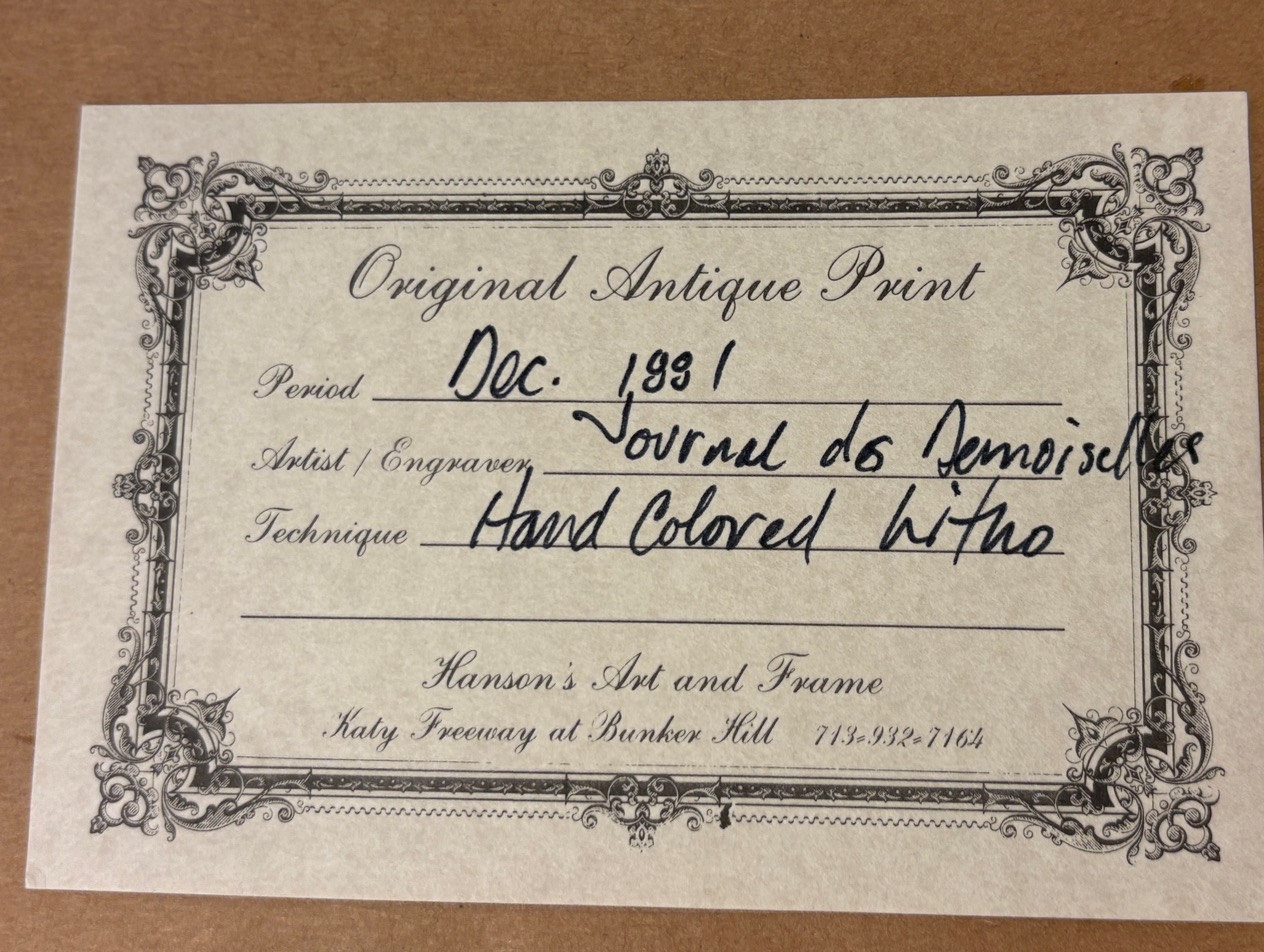 Original Antique Print
Period Dec. 1891
Artist / Engraver Journal des Demoiselles
Technique Hand Colored Litho
Hanson's Art and Frame
Katy Freeway at Bunker Hill 713-932-7164